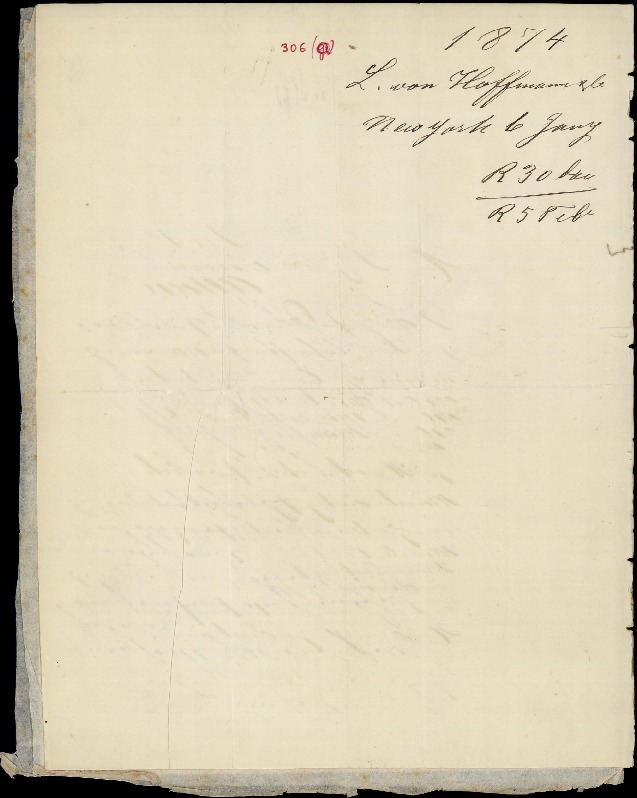 306
1874
L. von Hoffmann & Co
New York 6 Jany
R 30 das
R 5 Feb